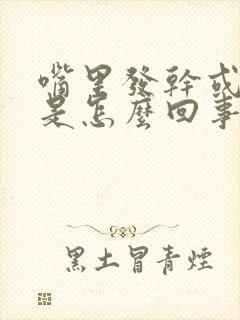 嘴里發幹或
是怎麼回事
黑土冒青煙